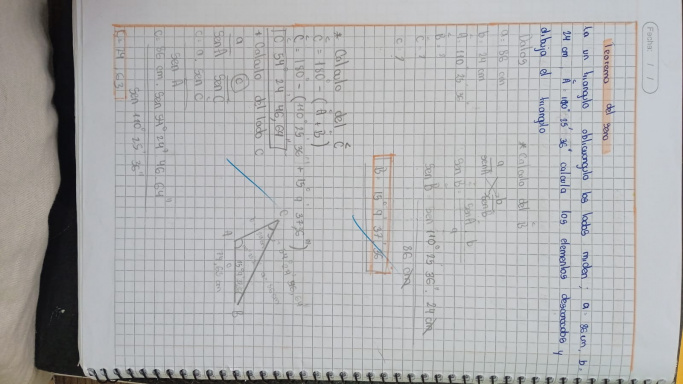 Fecha: / /
Teorema del seno
En un triangulo oblicuangulo los lados miden; a: 86 cm, b:
24 cm, Â: 110° 25' 36" calcula los elementos desconocidos y
dibuja el triangulo
Datos
a: 86 cm
b: 24 cm
Â: 110° 25' 36"
B̂: ?
Ĉ: ?
c: ?
* Calculo del B̂
a b
senA senB
sen B̂: sen  b
a
sen B̂: sen 110° 25' 36". 24 cm
86 cm
B̂: 15° 9' 37,36"
* Calculo del Ĉ
Ĉ = 180° - (Â + B̂)
Ĉ = 180° - (110° 25' 36" + 15° 9' 37,36")
Ĉ: 54° 24' 46,64"
* Calculo del lado c
a c
senA senC
c: a. sen C
sen A
c: 86 cm. sen 54° 24' 46,64"
sen 110° 25' 36"
C
A
B